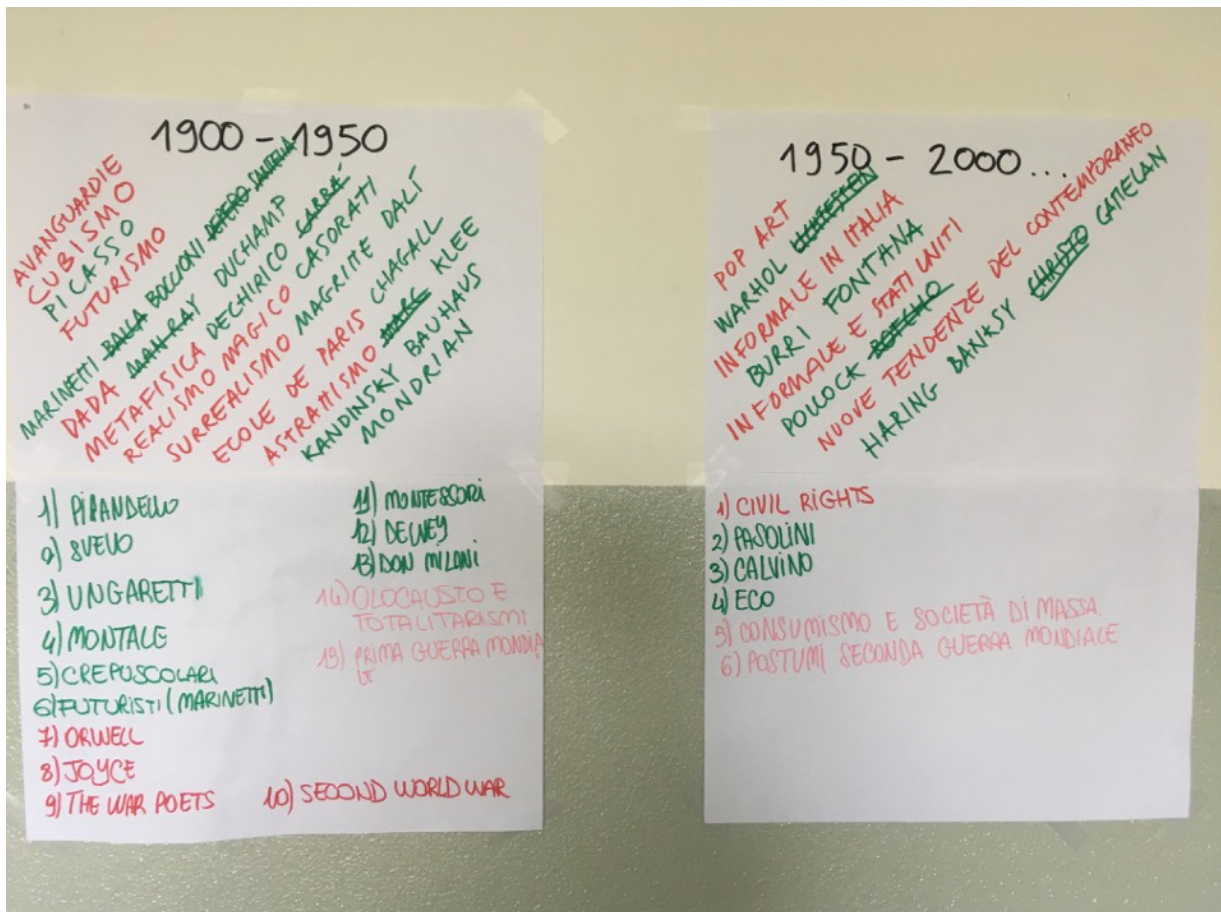 1900 - 1950
AVANGUARDIE
CUBISMO
PICASSO
FUTURISMO
MARINETTI BALLA BOCCIONI DEPERO
DADA MAN RAY DUCHAMP
METAFISICA DECHIRICO CARRÀ
REALISMO MAGICO CASORATI
SURREALISMO MAGRITTE DALÍ
ECOLE DE PARIS CHAGALL
ASTRATTISMO MARC KLEE
KANDINSKY BAUHAUS
MONDRIAN
1) PIRANDELLO
2) SVEVO
3) UNGARETTI
4) MONTALE
5) CREPUSCOLARI
6) FUTURISTI (MARINETTI)
7) ORWELL
8) JOYCE
9) THE WAR POETS
10) SECOND WORLD WAR
11) MONTESSORI
12) DEWEY
13) DON MILANI
14) OLOCAUSTO E
TOTALITARISMI
15) PRIMA GUERRA MONDIA
LE
1950 - 2000...
POP ART
WARHOL
INFORMALE IN ITALIA
BURRI FONTANA
INFORMALE E STATI UNITI
POLLOCK ROTHKO
NUOVE TENDENZE DEL CONTEMPORANEO
HARING BANKSY CHRISTO CATTELAN
1) CIVIL RIGHTS
2) PASOLINI
3) CALVINO
4) ECO
5) CONSUMISMO E SOCIETÀ DI MASSA
6) POSTUMI SECONDA GUERRA MONDIALE